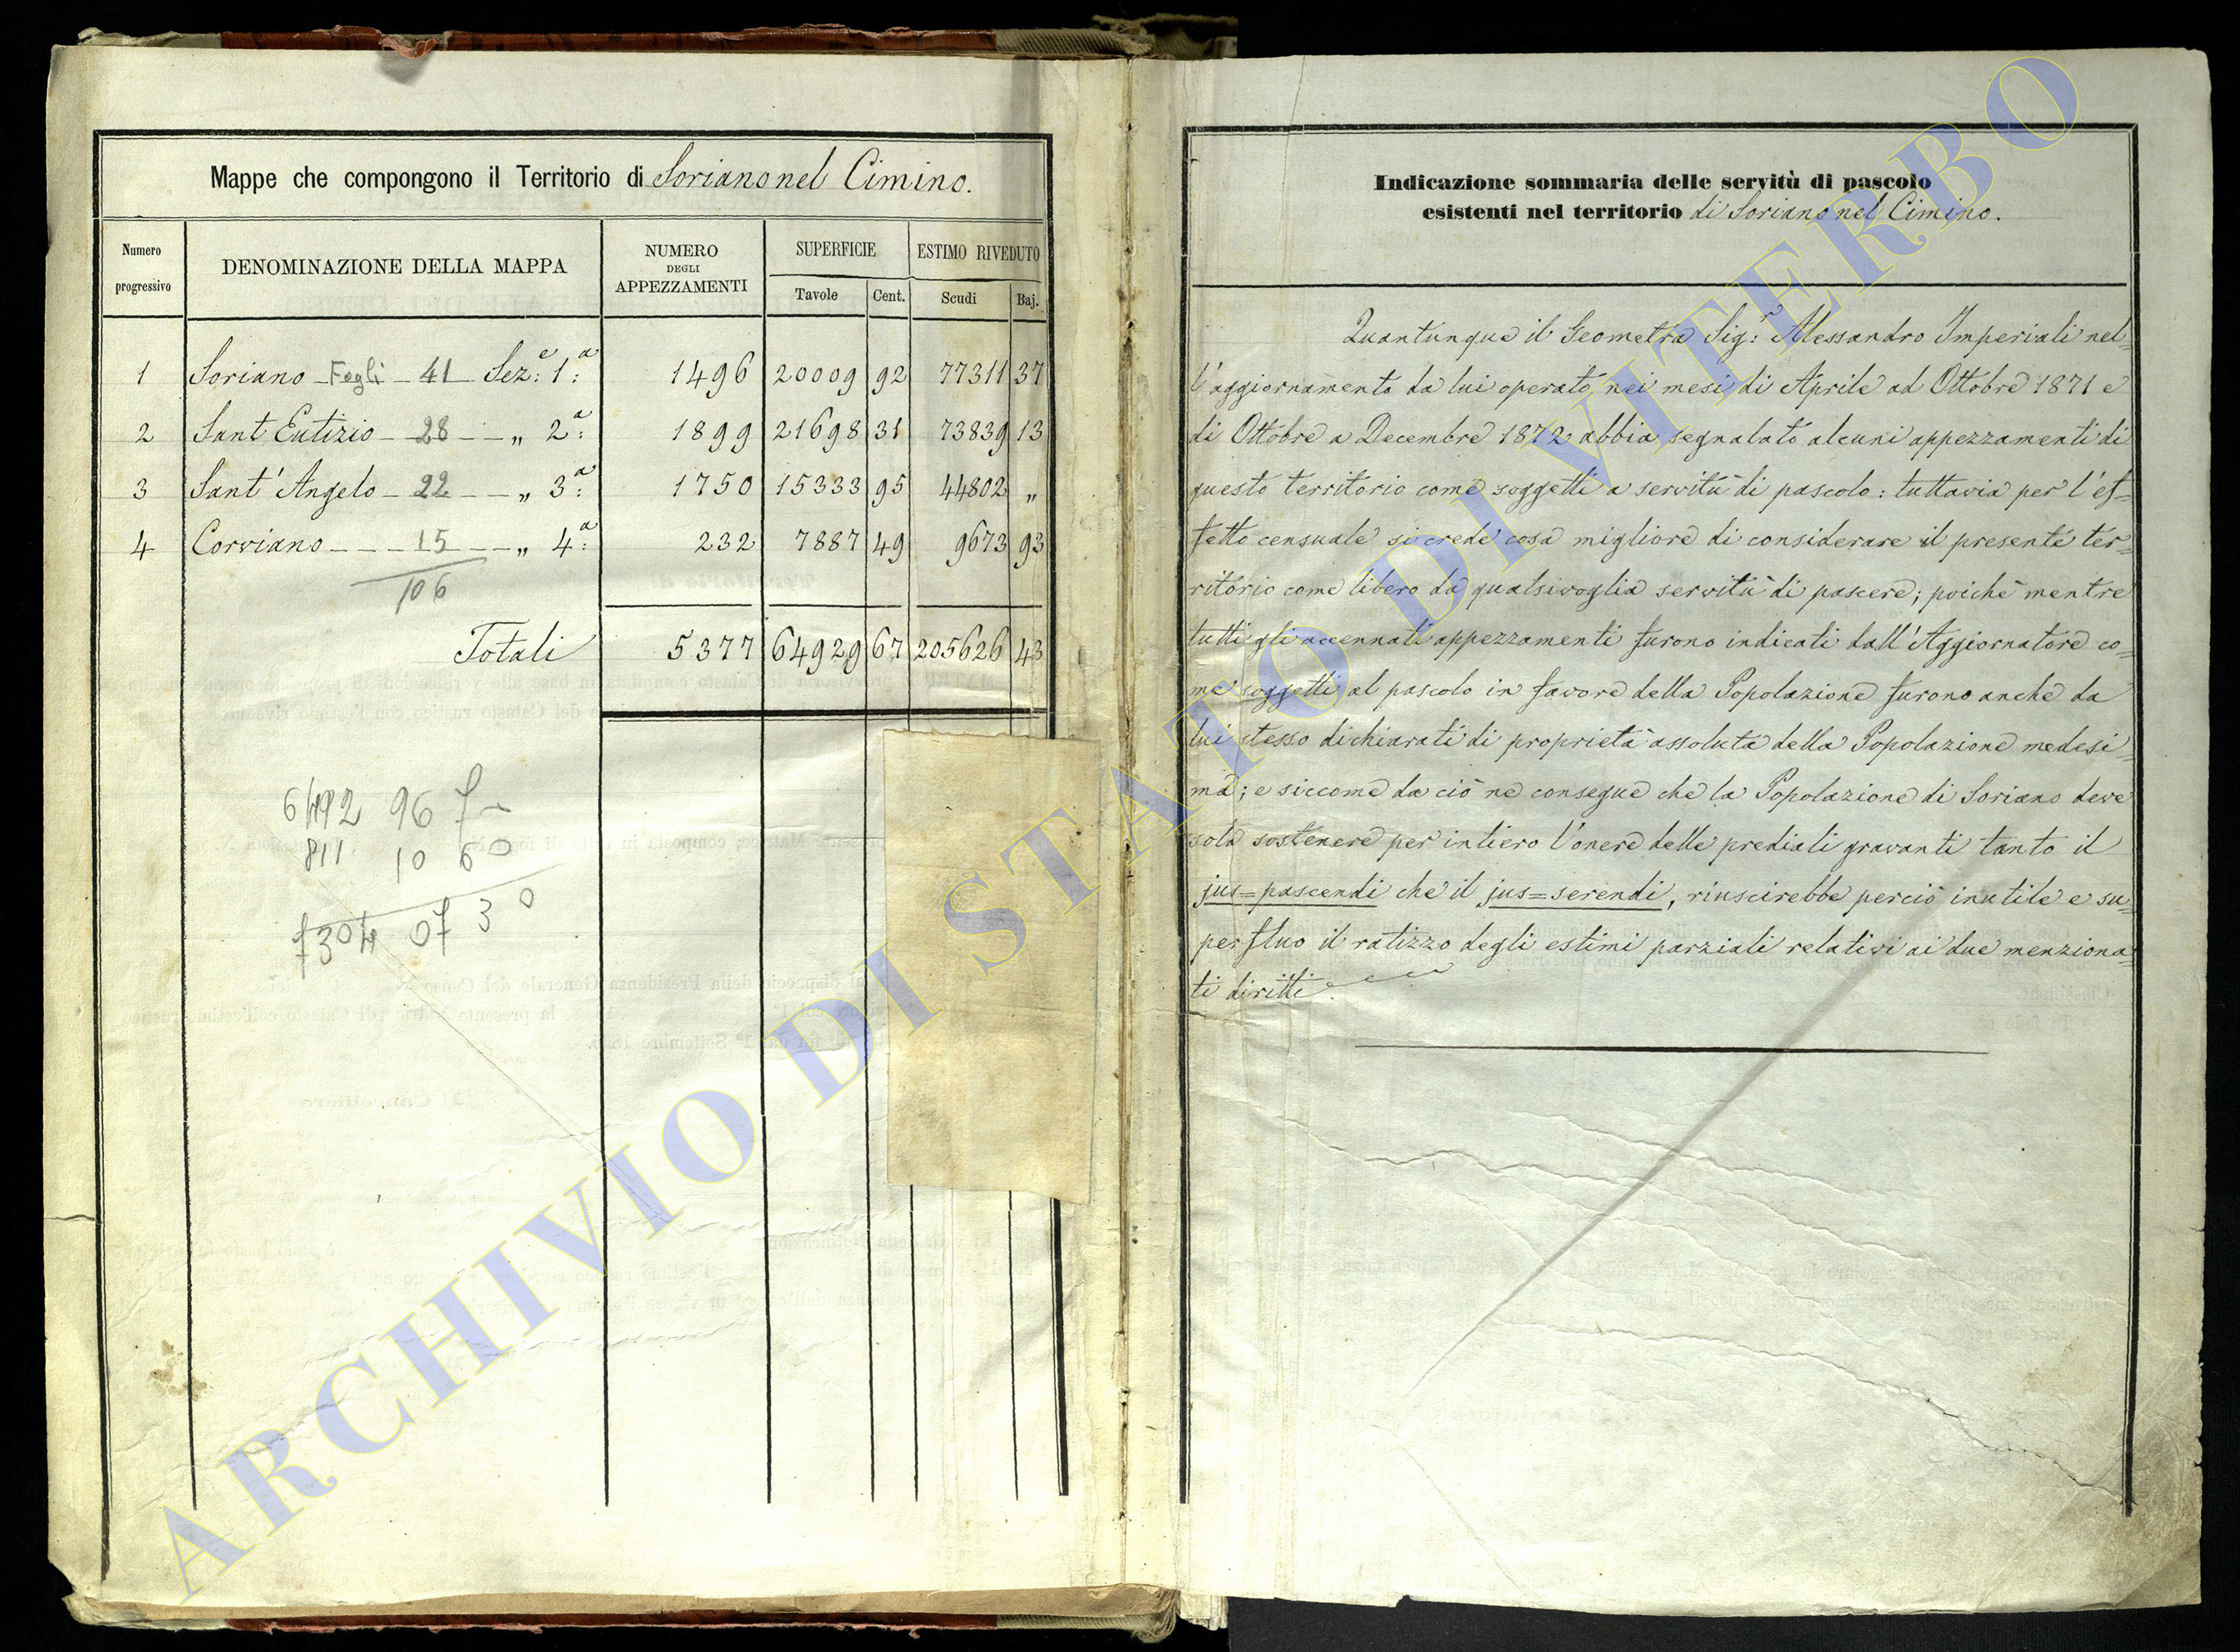 Mappe che compongono il Territorio di Soriano nel Cimino.
Numero progressivo | DENOMINAZIONE DELLA MAPPA | NUMERO DEGLI APPEZZAMENTI | SUPERFICIE Tavole Cent. | ESTIMO RIVEDUTO Scudi Baj.
1 Soriano - Fogli - 41 Sez:e 1:a 1496 20009 92 77311 37
2 Sant'Eutizio - 28 - - „ 2:a 1899 21698 31 73839 13
3 Sant'Angelo - 22 - - „ 3:a 1750 15333 95 44802 „
4 Corviano - - - 15 - - „ 4:a 232 7887 49 9673 93
106
Totali 5377 64929 67 205626 43
96
811 10 60
7304 07 30
Indicazione sommaria delle servitù di pascolo
esistenti nel territorio di Soriano nel Cimino.
Quantunque il Geometra Sig:r Alessandro Imperiali nel=
l'aggiornamento da lui operato nei mesi di Aprile ad Ottobre 1871 e
di Ottobre a Decembre 1872 abbia segnalato alcuni appezzamenti di
questo territorio come soggetti a servitù di pascolo: tuttavia per l'ef=
fetto censuale si crede cosa migliore di considerare il presente ter=
ritorio come libero da qualsivoglia servitù di pascere; poichè mentre
tutti gli accennati appezzamenti furono indicati dall'Aggiornatore co=
me soggetti al pascolo in favore della Popolazione furono anche da
lui stesso dichiarati di proprietà assoluta della Popolazione medesi=
ma; e siccome da ciò ne consegue che la Popolazione di Soriano deve
sola sostenere per intiero l'onere delle prediali gravanti tanto il
jus=pascendi che il jus=serendi, riuscirebbe perciò inutile e su=
perfluo il ratizzo degli estimi parziali relativi ai due menziona=
ti diritti.
ARCHIVIO DI STATO DI VITERBO